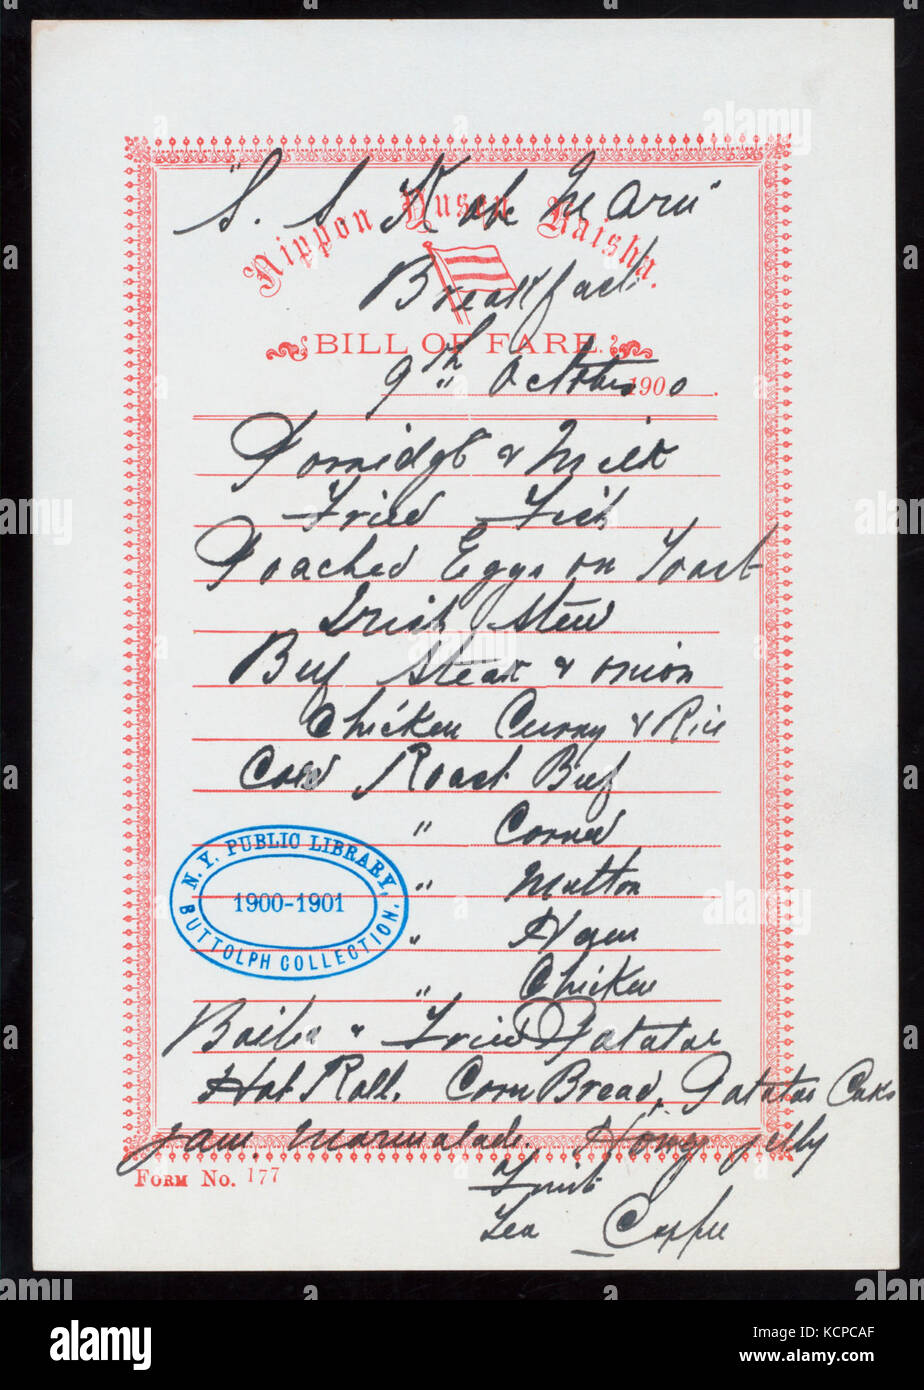 "S. S. Kobe Maru"
Nippon Yusen Kaisha.
Breakfast
BILL OF FARE.
9th October 1900.
Porridge & Milk
Fried Fish
Poached Eggs on Toast
Irish Stew
Beef Steak & Onion
Chicken Curry & Rice
Cold Roast Beef
" Corned
" Mutton
" Ham
" Chicken
N. Y. PUBLIC LIBRARY,
1900-1901
BUTTOLPH COLLECTION.
Boiled & Fried Potatoe
Hot Roll. Corn Bread. Potatoe Cake
Jam. Marmalade. Honey Jelly
FORM No. 177
Fruit
Tea Coffee
alamy
Image ID: KCPCAF
www.alamy.com